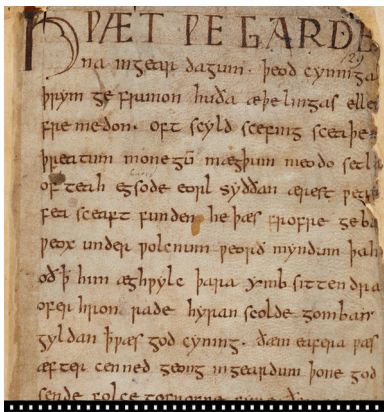 HǷÆT ǷE GARDE
129
na ingear dagum. þeod cyninga
þrym ge frunon huða æþelingas elle
fre medon. oft scyld scefing sceaþe
þreatum monegū mægþum meodo setla
of teah egsode eorl syððan ærest ƿear
fea sceaft funden he þæs frofre geba
ƿeox under ƿolcnum ƿeorð myndum þah
oð ꝥ him æghƿylc þara ymb sittendra
ofer hron rade hyran scolde gomban
gyldan ꝥ ƿæs god cyning. ðæm eafera ƿæs
æfter cenned geong ingeardum þone god
sende folce tofrofre